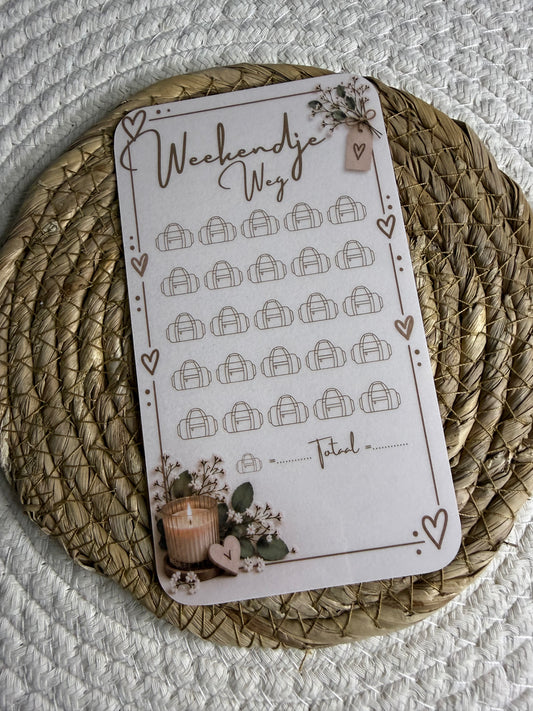 Weekendje
Weg
=............ Totaal =............